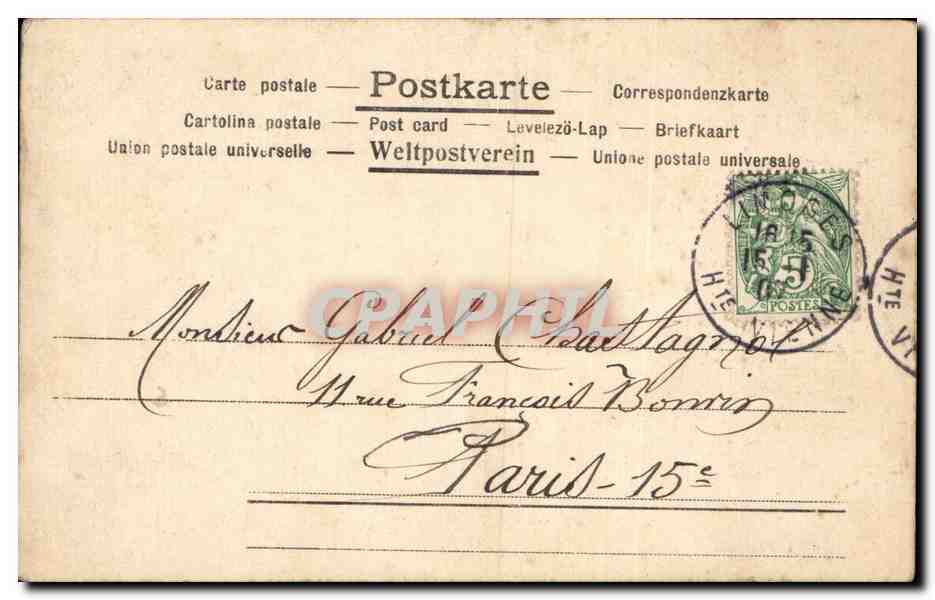 Carte postale — Postkarte — Correspondenzkarte
Cartolina postale — Post card — Levelezö-Lap — Briefkaart
Union postale universelle — Weltpostverein — Unione postale universale
LIMOGES
18 5
15 - 1
HTE VIENNE
5
POSTES
HTE VI
CPAPHIL
Monsieur Gabriel Chastagnol
11 rue François Bonvin
Paris - 15e